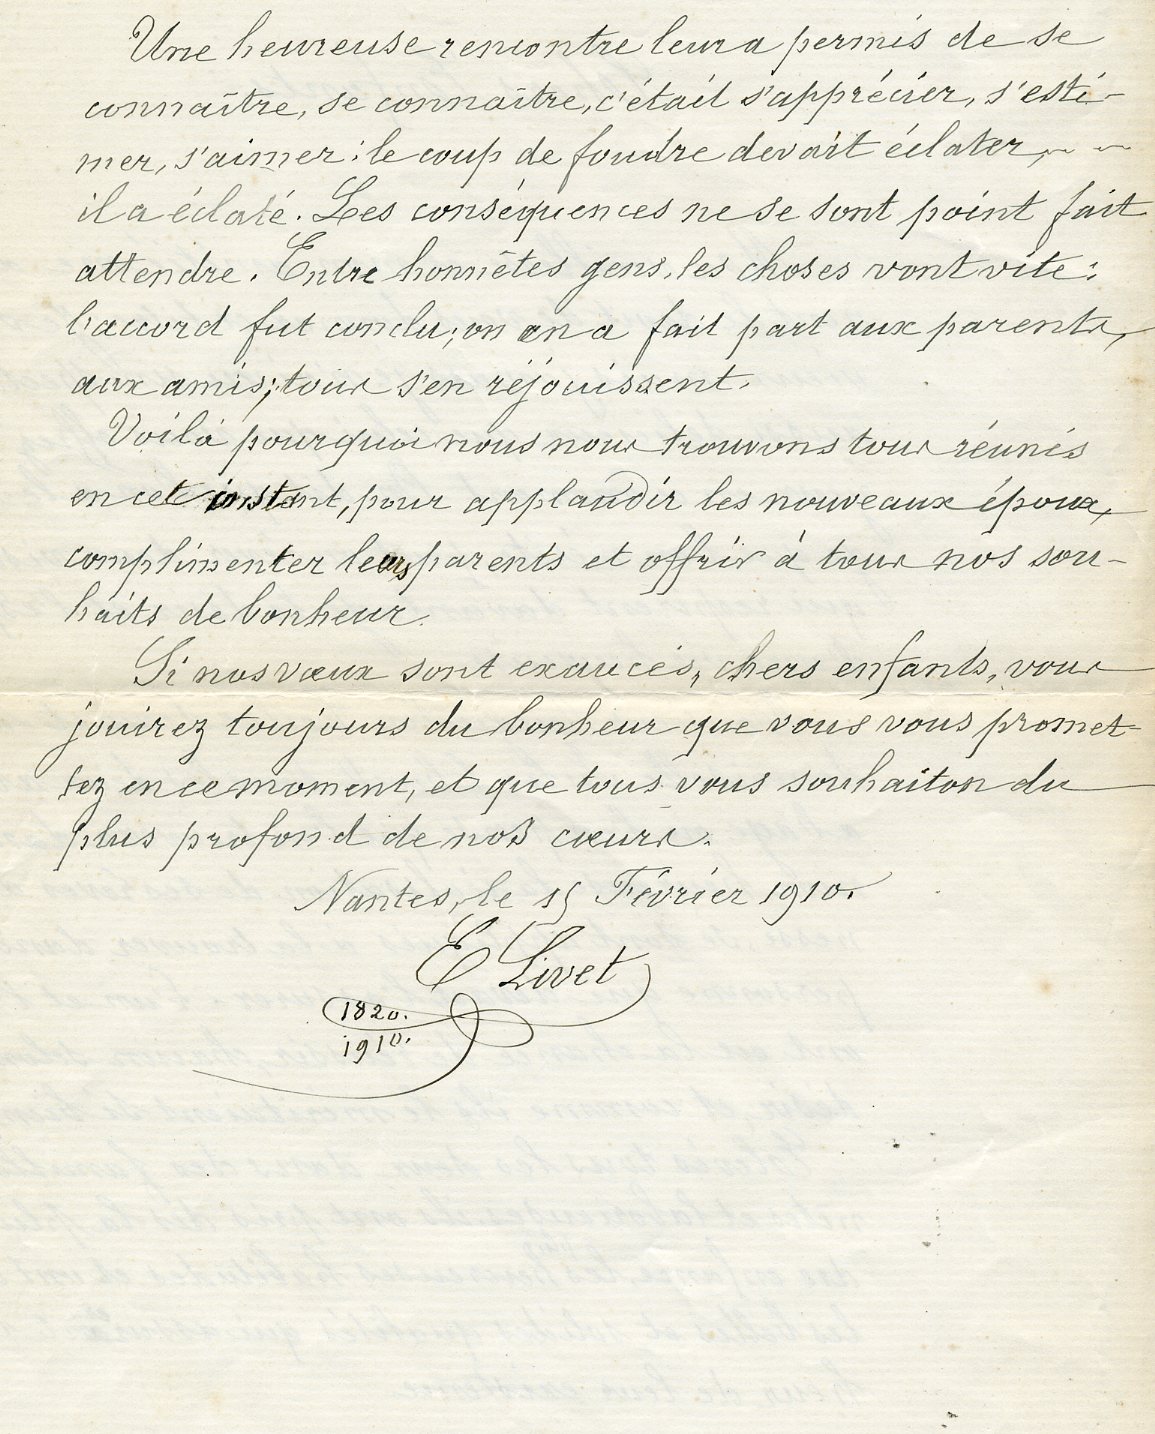 Une heureuse rencontre leur a permis de se
connaître, se connaître, c'était s'apprécier, s'esti-
mer, s'aimer : le coup de foudre devait éclater,
il a éclaté. Les conséquences ne se sont point fait
attendre. Entre honnêtes gens, les choses vont vite :
l'accord fut conclu ; on en a fait part aux parents,
aux amis ; tous s'en réjouissent.
Voilà pourquoi nous nous trouvons tous réunis
en cet instant, pour applaudir les nouveaux époux,
complimenter leurs parents et offrir à tous nos sou-
haits de bonheur.
Si nos vœux sont exaucés, chers enfants, vous
jouirez toujours du bonheur que vous vous promet-
tez en ce moment, et que tous vous souhaiton du
plus profond de nos cœurs.
Nantes, le 15 Février 1910.
E Livet
1820.
1910.